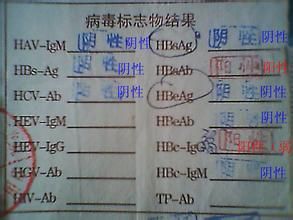 病毒标志物结果
HAV-IgM 阴性 阴性 HBsAg 阴性 阴性
HBs-Ag 阴性 阴性 HBsAb 阳性 阳性
HCV-Ab 阴性 阴性 HBeAg 阴性 阴性
HEV-IgM HBeAb 阴性 阴性
HEV-IgG HBc-IgG 阳性 阳性 弱
HGV-Ab HBc-IgM 阴性 阴性
HIV-Ab TP-Ab